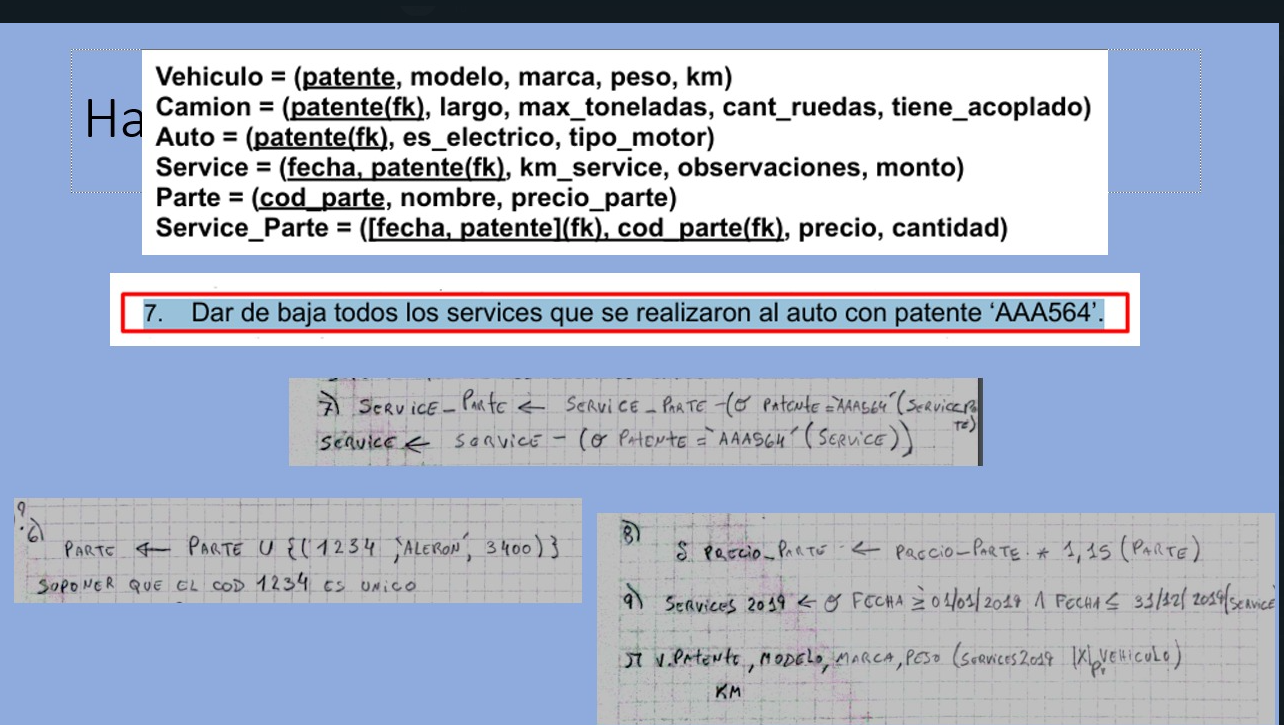 Ha
Vehiculo = (patente, modelo, marca, peso, km)
Camion = (patente(fk), largo, max_toneladas, cant_ruedas, tiene_acoplado)
Auto = (patente(fk), es_electrico, tipo_motor)
Service = (fecha, patente(fk), km_service, observaciones, monto)
Parte = (cod_parte, nombre, precio_parte)
Service_Parte = ([fecha, patente](fk), cod_parte(fk), precio, cantidad)
7. Dar de baja todos los services que se realizaron al auto con patente ‘AAA564’.
7) SERVICE_PARTE ← SERVICE_PARTE -(σ PATENTE='AAA564'(SERVICEPARTE)
SERVICE ← SERVICE - (σ PATENTE = 'AAA564' (SERVICE))
6)
PARTE ← PARTE U {(1234, 'ALERON', 3400)}
SUPONER QUE EL COD 1234 ES UNICO
8)
δ PRECIO_PARTE ← PRECIO_PARTE * 1,15 (PARTE)
9) SERVICES 2019 ← σ FECHA ≥ 01/01/2019 ∧ FECHA ≤ 31/12/2019(SERVICE
π V.PATENTE, MODELO, MARCA, PESO (SERVICES2019 |X| VEHICULO)
KM